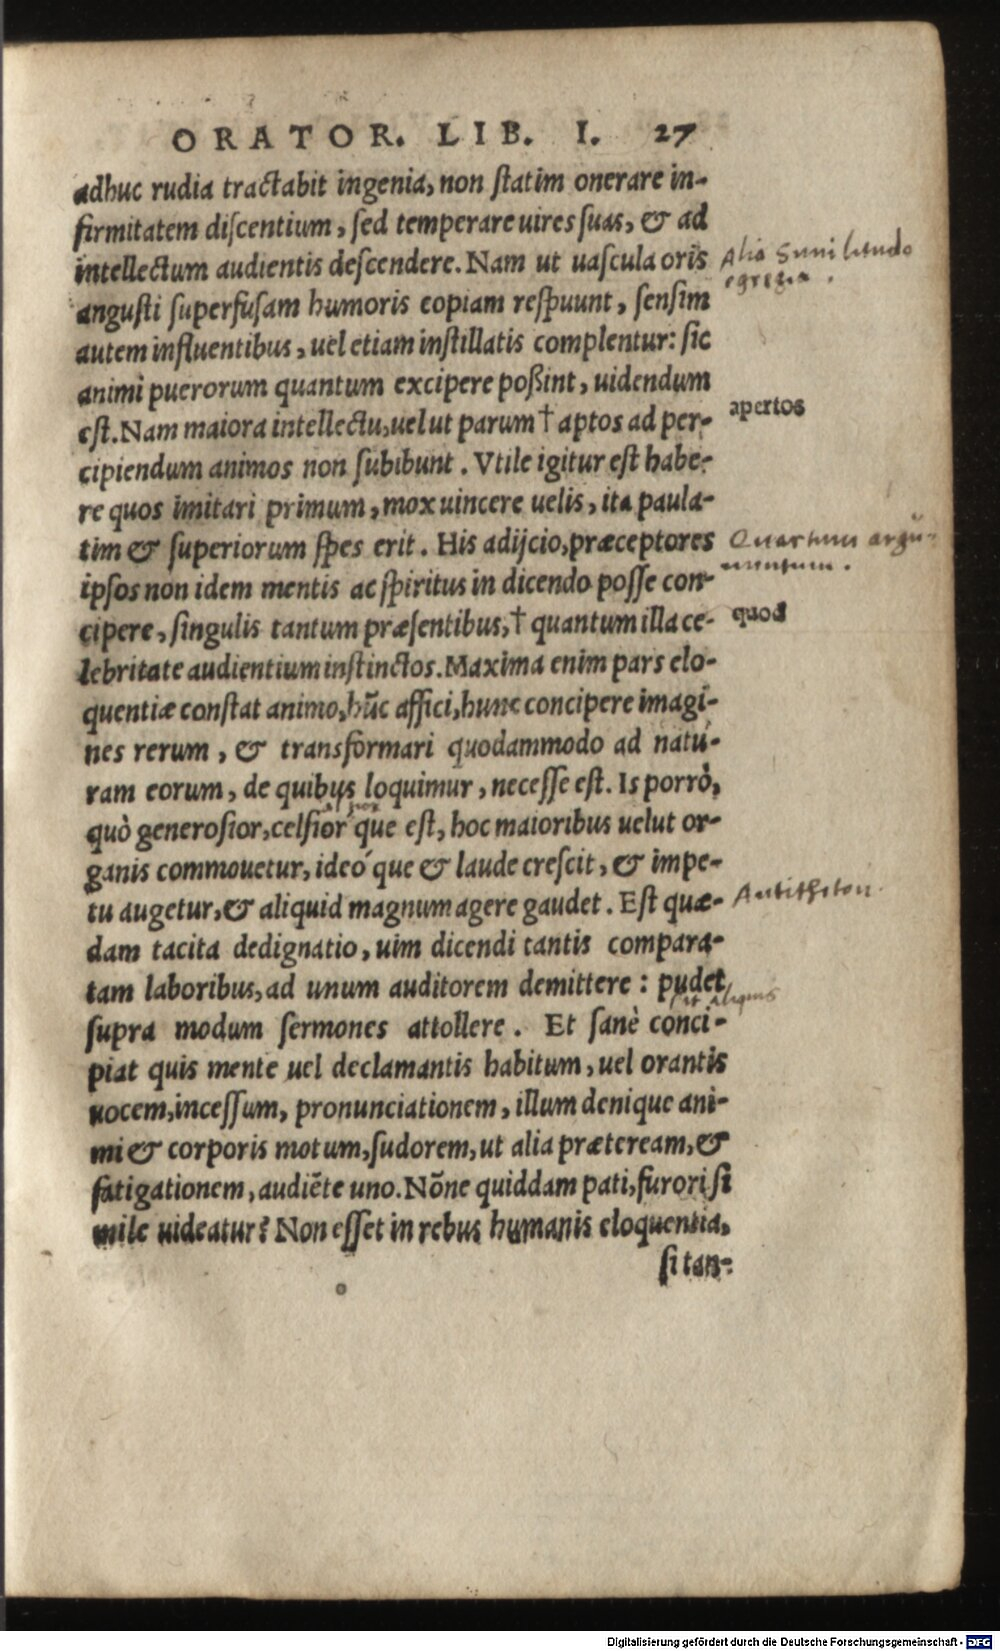 ORATOR. LIB. I. 27
adhuc rudia tractabit ingenia, non ſtatim onerare in-
firmitatem diſcentium, ſed temperare uires ſuas, & ad
intellectum audientis deſcendere. Nam ut uaſcula oris
Alia Similitudo
egregia.
anguſti ſuperfuſam humoris copiam reſpuunt, ſenſim
autem influentibus, uel etiam inſtillatis complentur: ſic
animi puerorum quantum excipere poßint, uidendum
eſt. Nam maiora intellectu, uelut parum † aptos ad per-
apertos
cipiendum animos non ſubibunt. Vtile igitur eſt habe-
re quos imitari primum, mox uincere uelis, ita paula-
tim & ſuperiorum ſpes erit. His adijcio, præceptores
Quartum argu-
mentum.
ipſos non idem mentis ac ſpiritus in dicendo poſſe con-
cipere, ſingulis tantum præſentibus, † quantum illa ce-
quod
lebritate audientium inſtinctos. Maxima enim pars elo-
quentiæ conſtat animo, hūc affici, hunc concipere imagi-
nes rerum, & transformari quodammodo ad natu-
ram eorum, de quibus loquimur, neceſſe eſt. Is porrò,
quò generoſior, celſior que eſt, hoc maioribus uelut or-
ganis commouetur, ideó que & laude creſcit, & impe-
tu augetur, & aliquid magnum agere gaudet. Eſt quæ-
Antitheton.
dam tacita dedignatio, uim dicendi tantis compara-
tam laboribus, ad unum auditorem demittere: pudet
ſupra modum ſermones attollere. Et ſanè conci-
aliquis
piat quis mente uel declamantis habitum, uel orantis
uocem, inceſſum, pronunciationem, illum denique ani-
mi & corporis motum, ſudorem, ut alia præteream, &
fatigationem, audiēte uno. Nōne quiddam pati, furori ſi
mile uideatur? Non eſſet in rebus humanis eloquentia,
ſi tan-
Digitalisierung gefördert durch die Deutsche Forschungsgemeinschaft - DFG